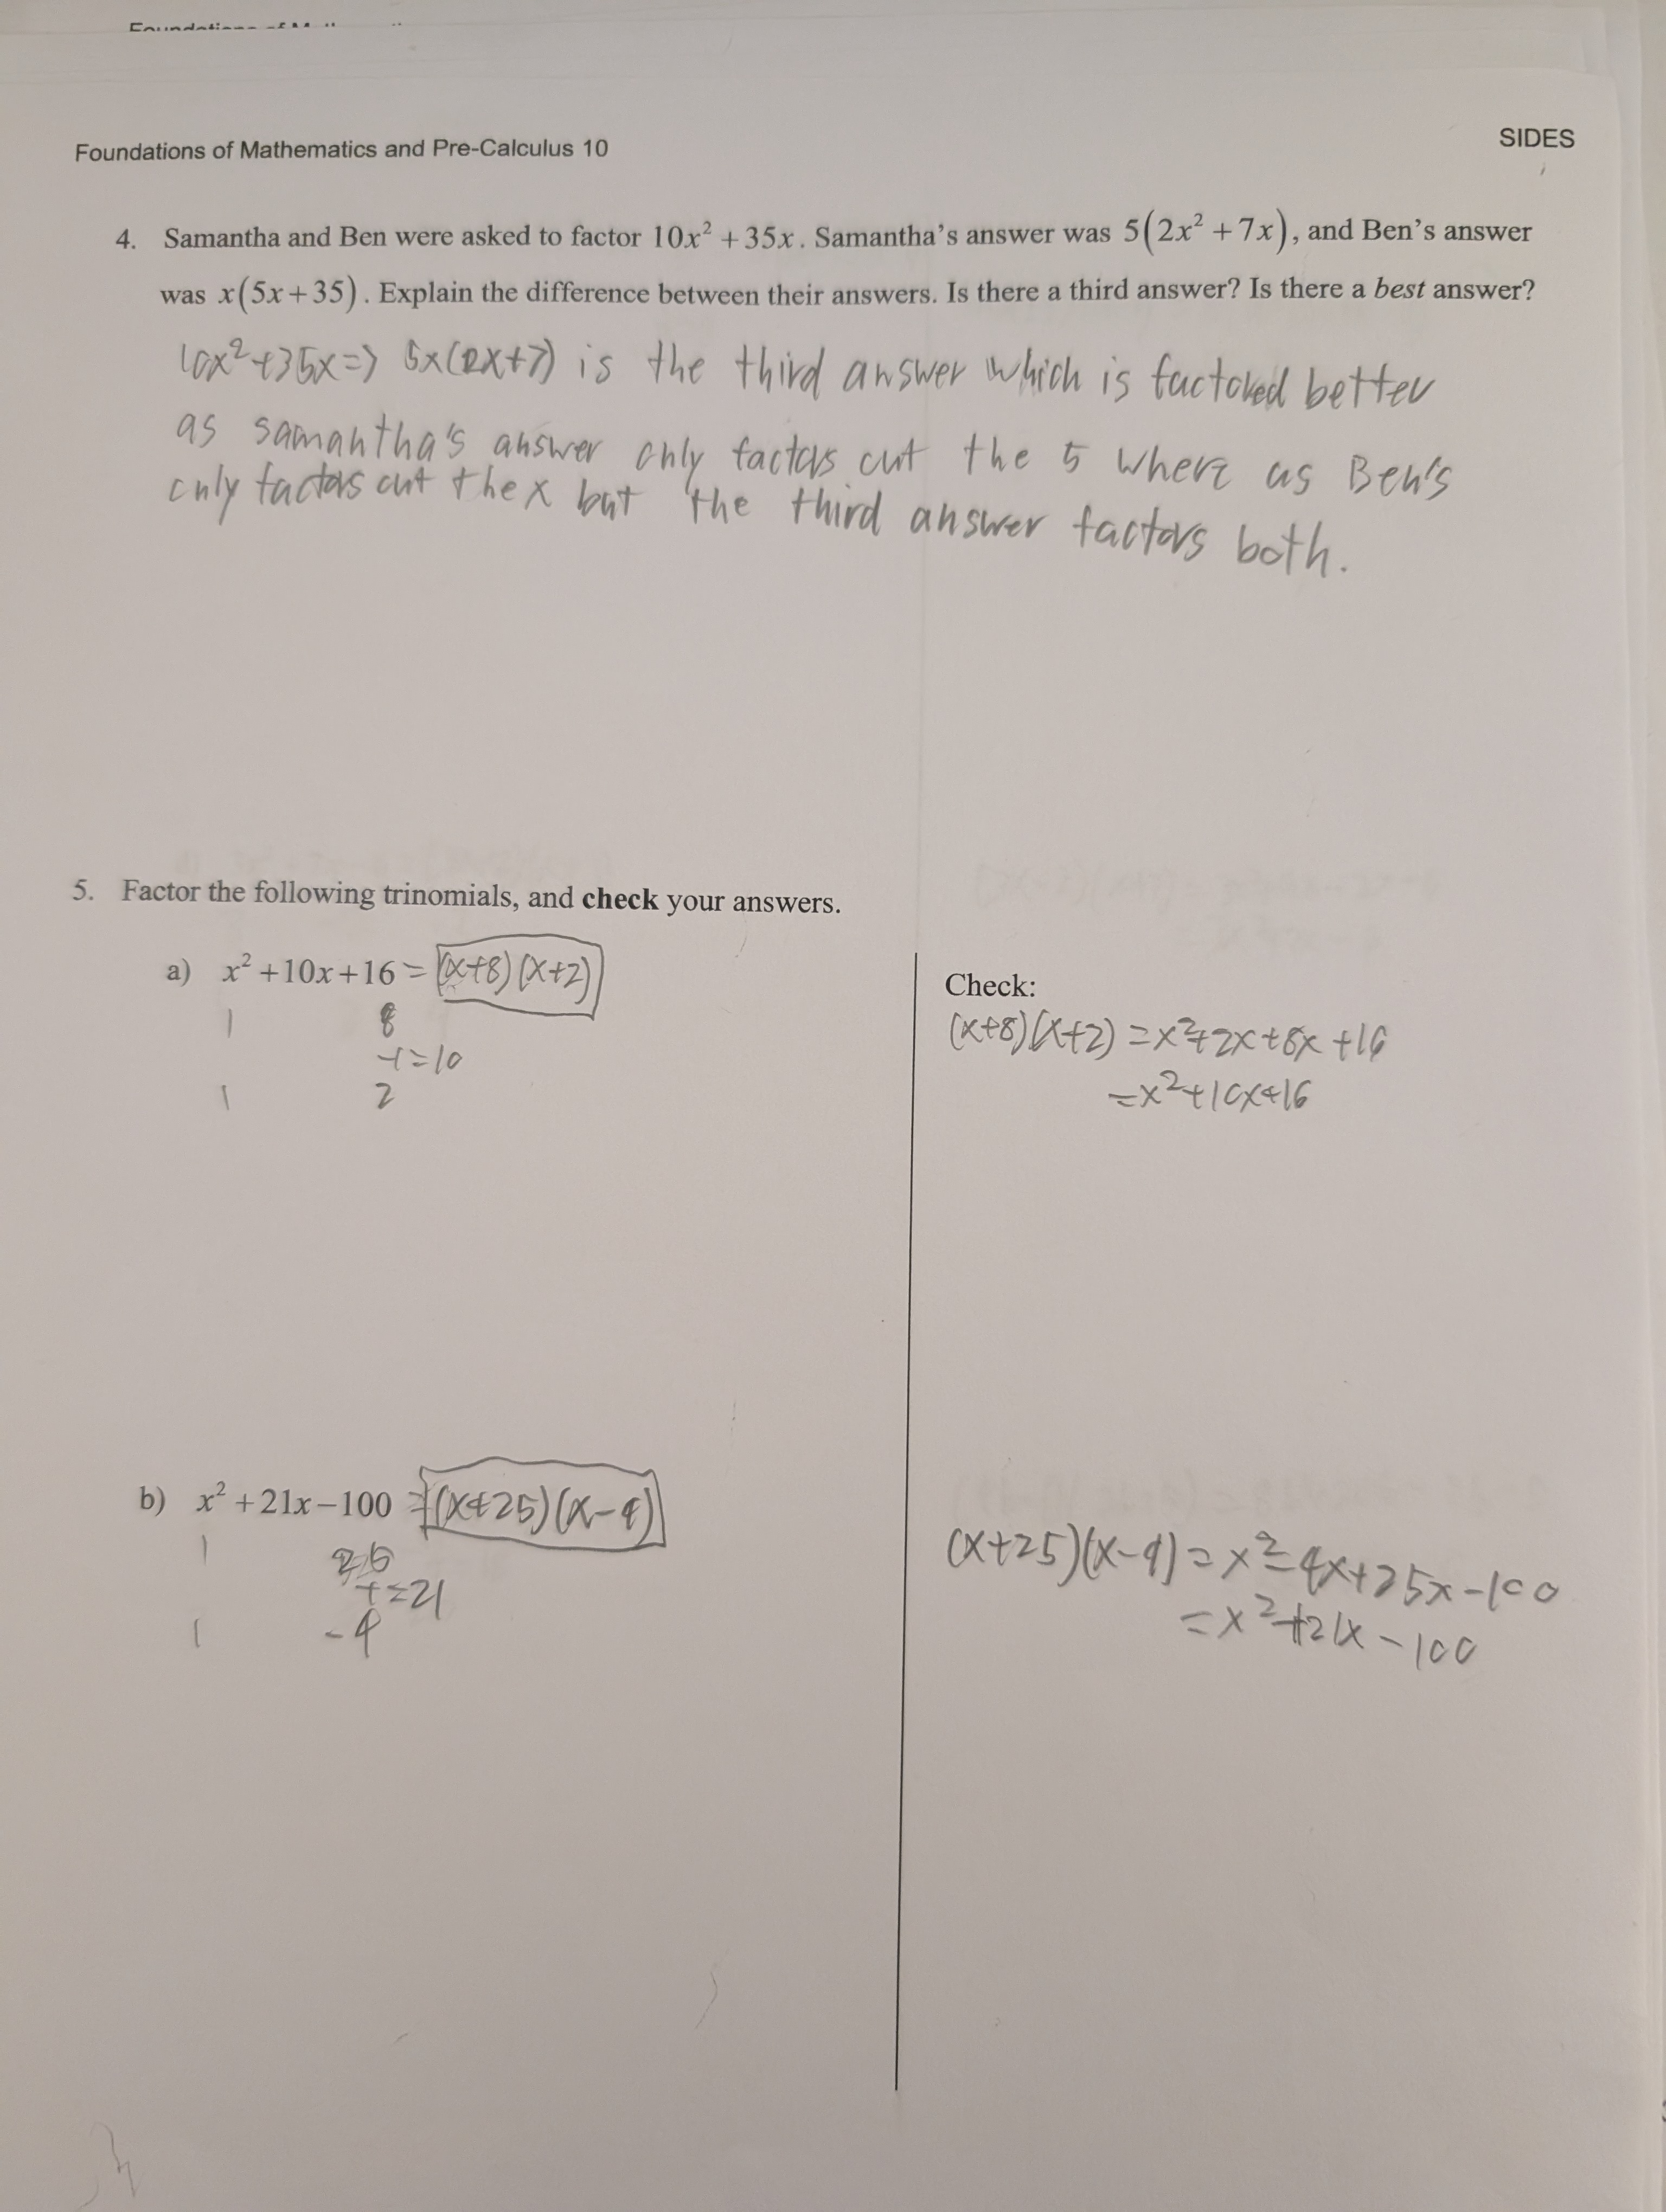 Foundations of Mathematics and Pre-Calculus 10
SIDES
4. Samantha and Ben were asked to factor 10x² + 35x. Samantha's answer was 5(2x² + 7x), and Ben's answer
was x(5x + 35). Explain the difference between their answers. Is there a third answer? Is there a best answer?
10x²+35x=> 5x(2x+7) is the third answer which is factored better
as samantha's answer only factors out the 5 where as Ben's
only factors out the x but the third answer factors both.
5. Factor the following trinomials, and check your answers.
a) x² +10x+16 = (x+8)(x+2)
1 8
+=10
1 2
Check:
(x+8)(x+2) = x²+2x+8x+16
=x²+10x+16
b) x² +21x−100 =(x+25)(x-4)
1 25
+=21
1 -4
(x+25)(x-4) = x²-4x+25x-100
=x²+21x-100